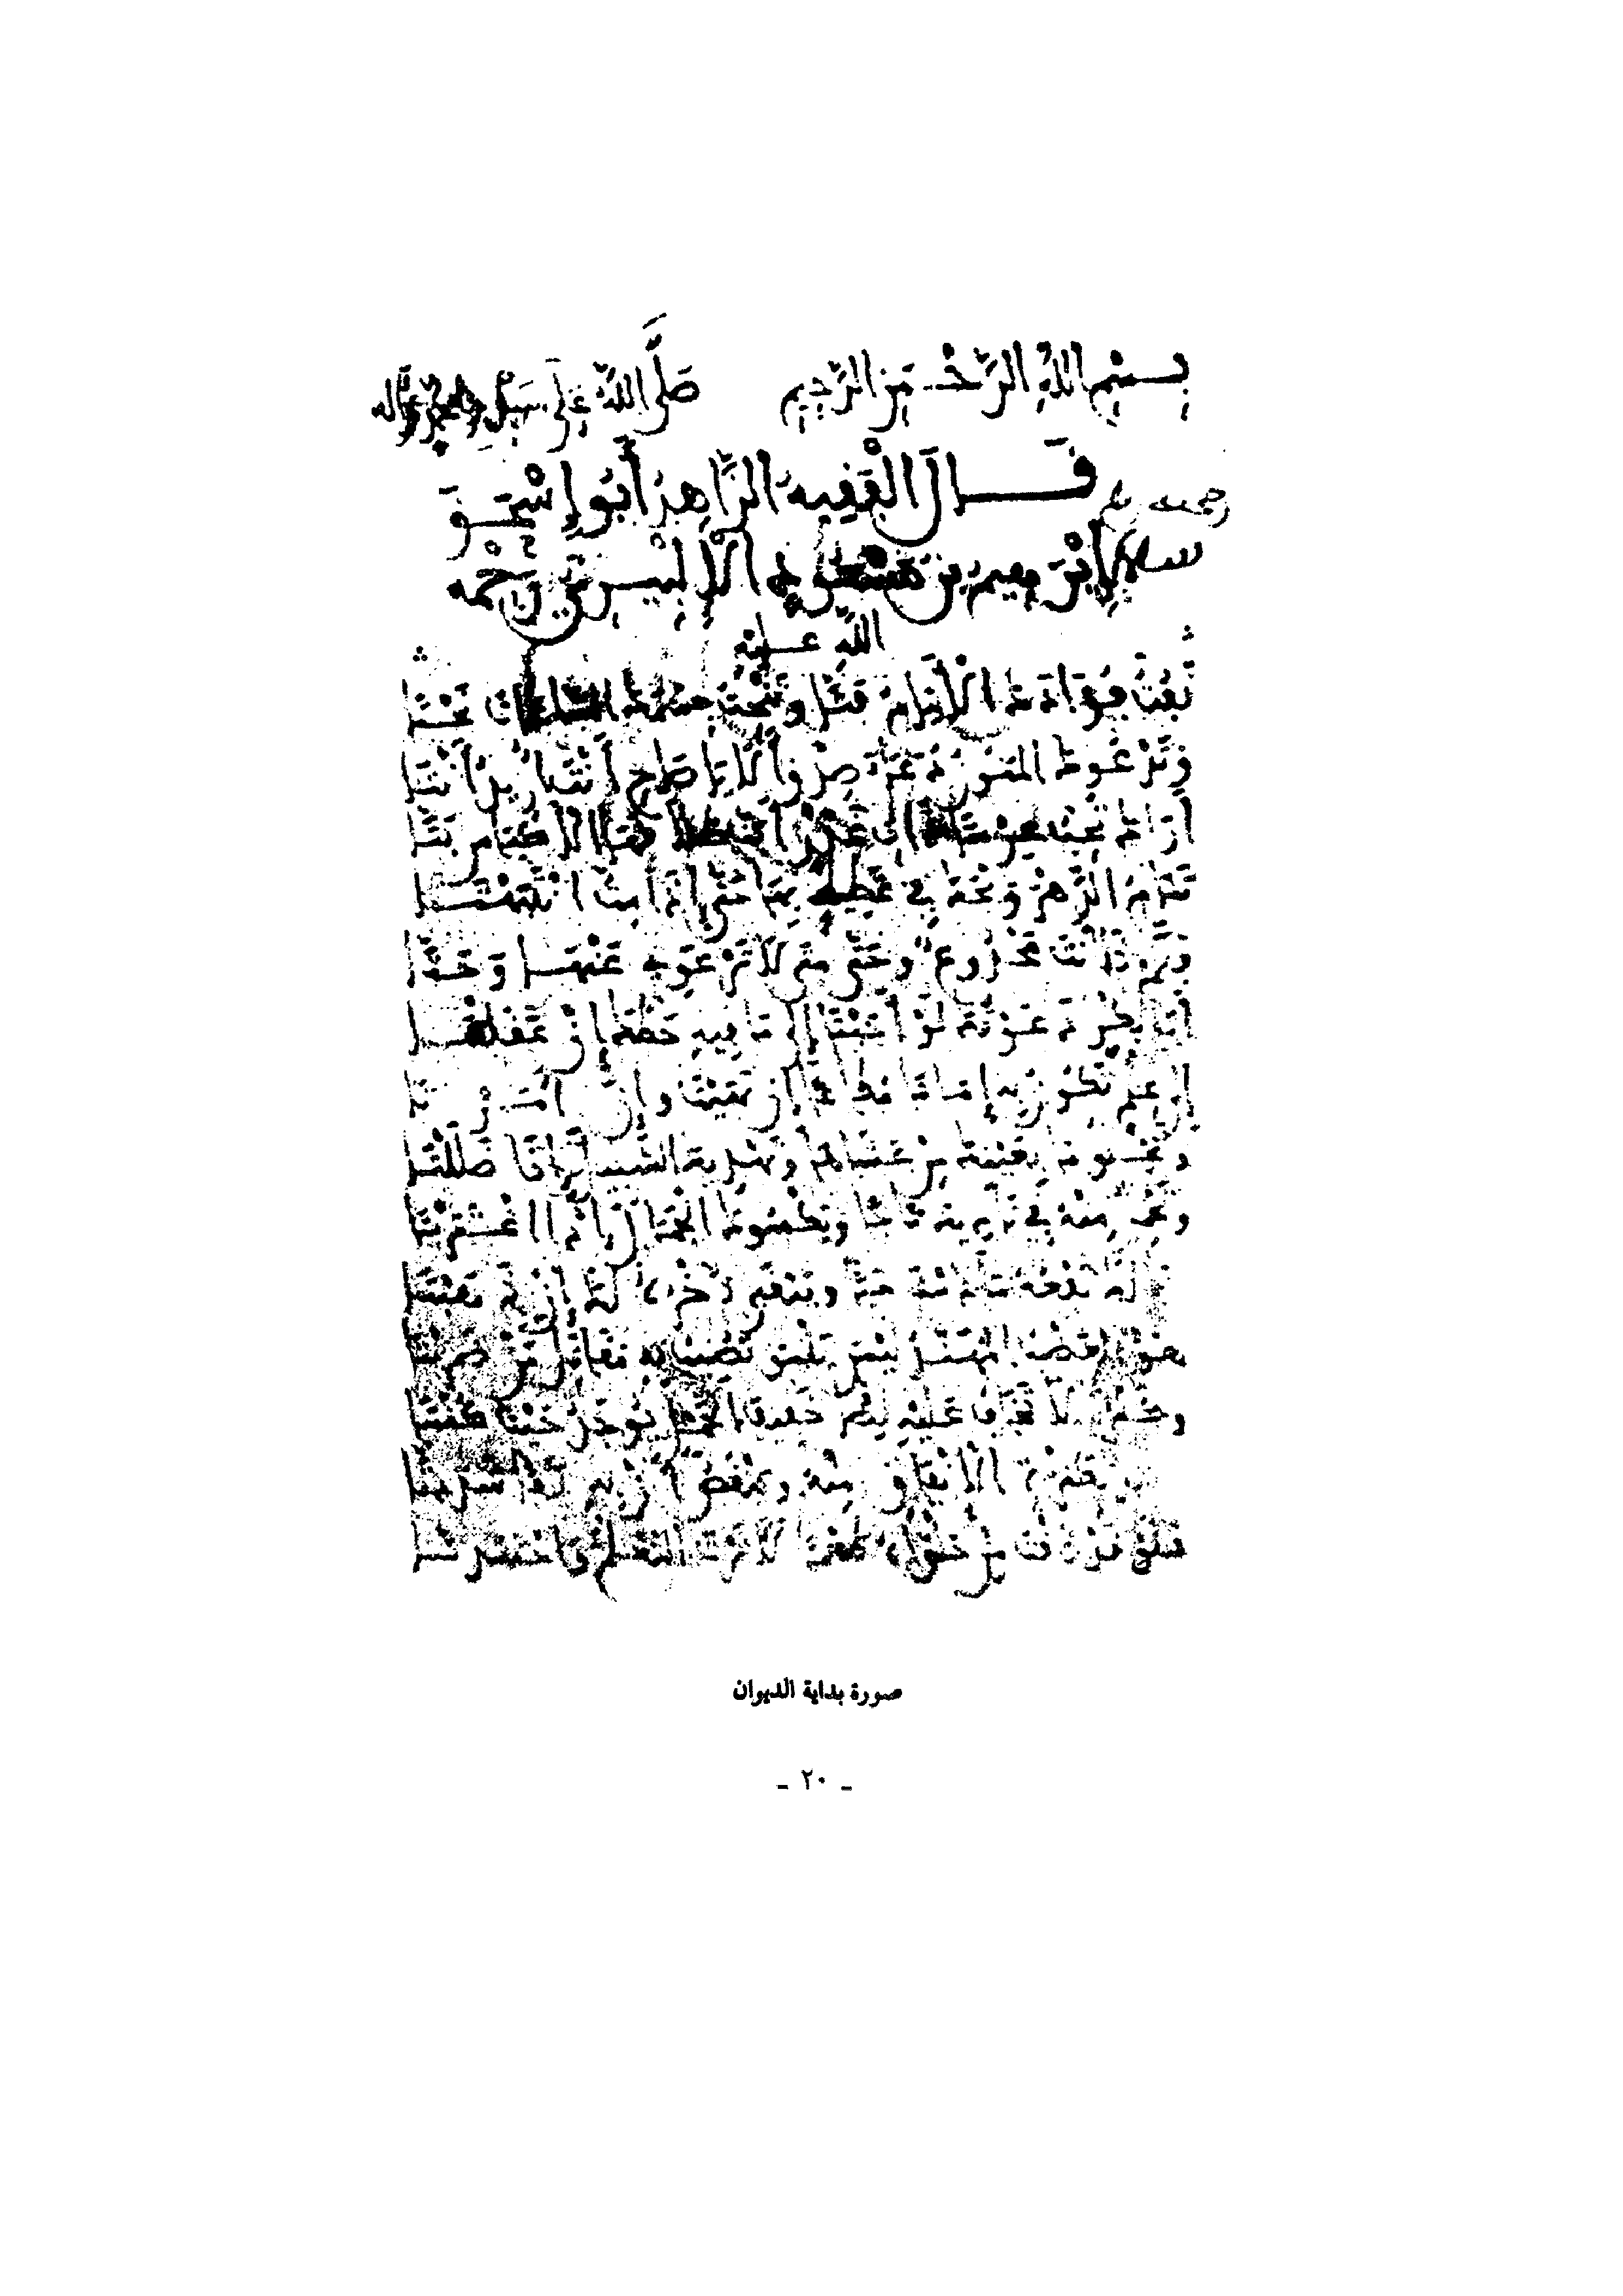 بسم الله الرحمن الرحيم صلى الله على سيدنا محمد وآله
قال الفقيه الزاهد أبو إسحق
إبراهيم بن مسعود الإلبيري رحمه
الله عليه
تفت فؤادك الأيام فتا وتنحت جسمك الساعات نحتا
وتدعوك المنون دعاء صدق ألا يا صاح أنت أريد أنتا
أراك تحب عرسا غدر أبت طلاقها الأكياس بتا
تنام الدهر ويحك في غطيط بها حتى إذا مت انتبهتا
فكم ذا أنت مخدوع وحتى متى لا ترعوي عنها وحتى
أبا بكر دعوتك لو أجبتا إلى ما فيه حظك إن عقلتا
إلى علم تكون به إماما مطاعا إن نهيت وإن أمرتا
وتجلو ما بعينك من غشاها وتهديك السبيل إذا ضللتا
وتحمل منه في ناديك تاجا ويكسوك الجمال إذا اغتربتا
ينالك نفعه ما دمت حيا ويبقى ذخره لك إن ذهبتا
هو العضب المهند ليس ينبو تصيب به مقاتل من ضربتا
وكنز لا تخاف عليه لصا خفيف الحمل يوجد حيث كنتا
يزيد بكثرة الإنفاق منه وينقص أن به كفا شددتا
فلو قد ذقت من حلواه طعما لآثرت التعلم واجتهدتا
صورة بداية الديوان
- ٢٠ -